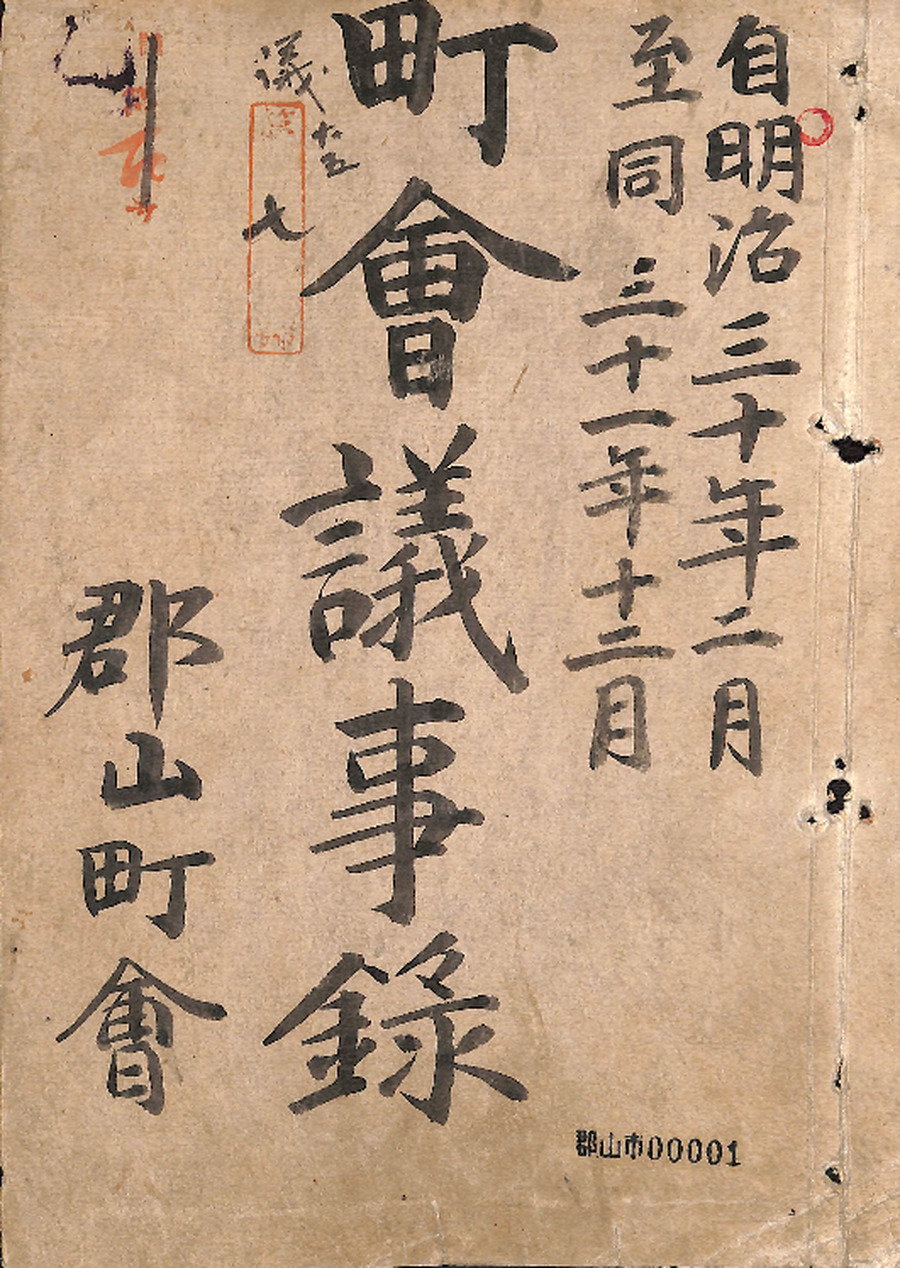 自明治三十年二月
至同三十一年十二月
町會議事錄
議十五
七
郡山町會
郡山市00001